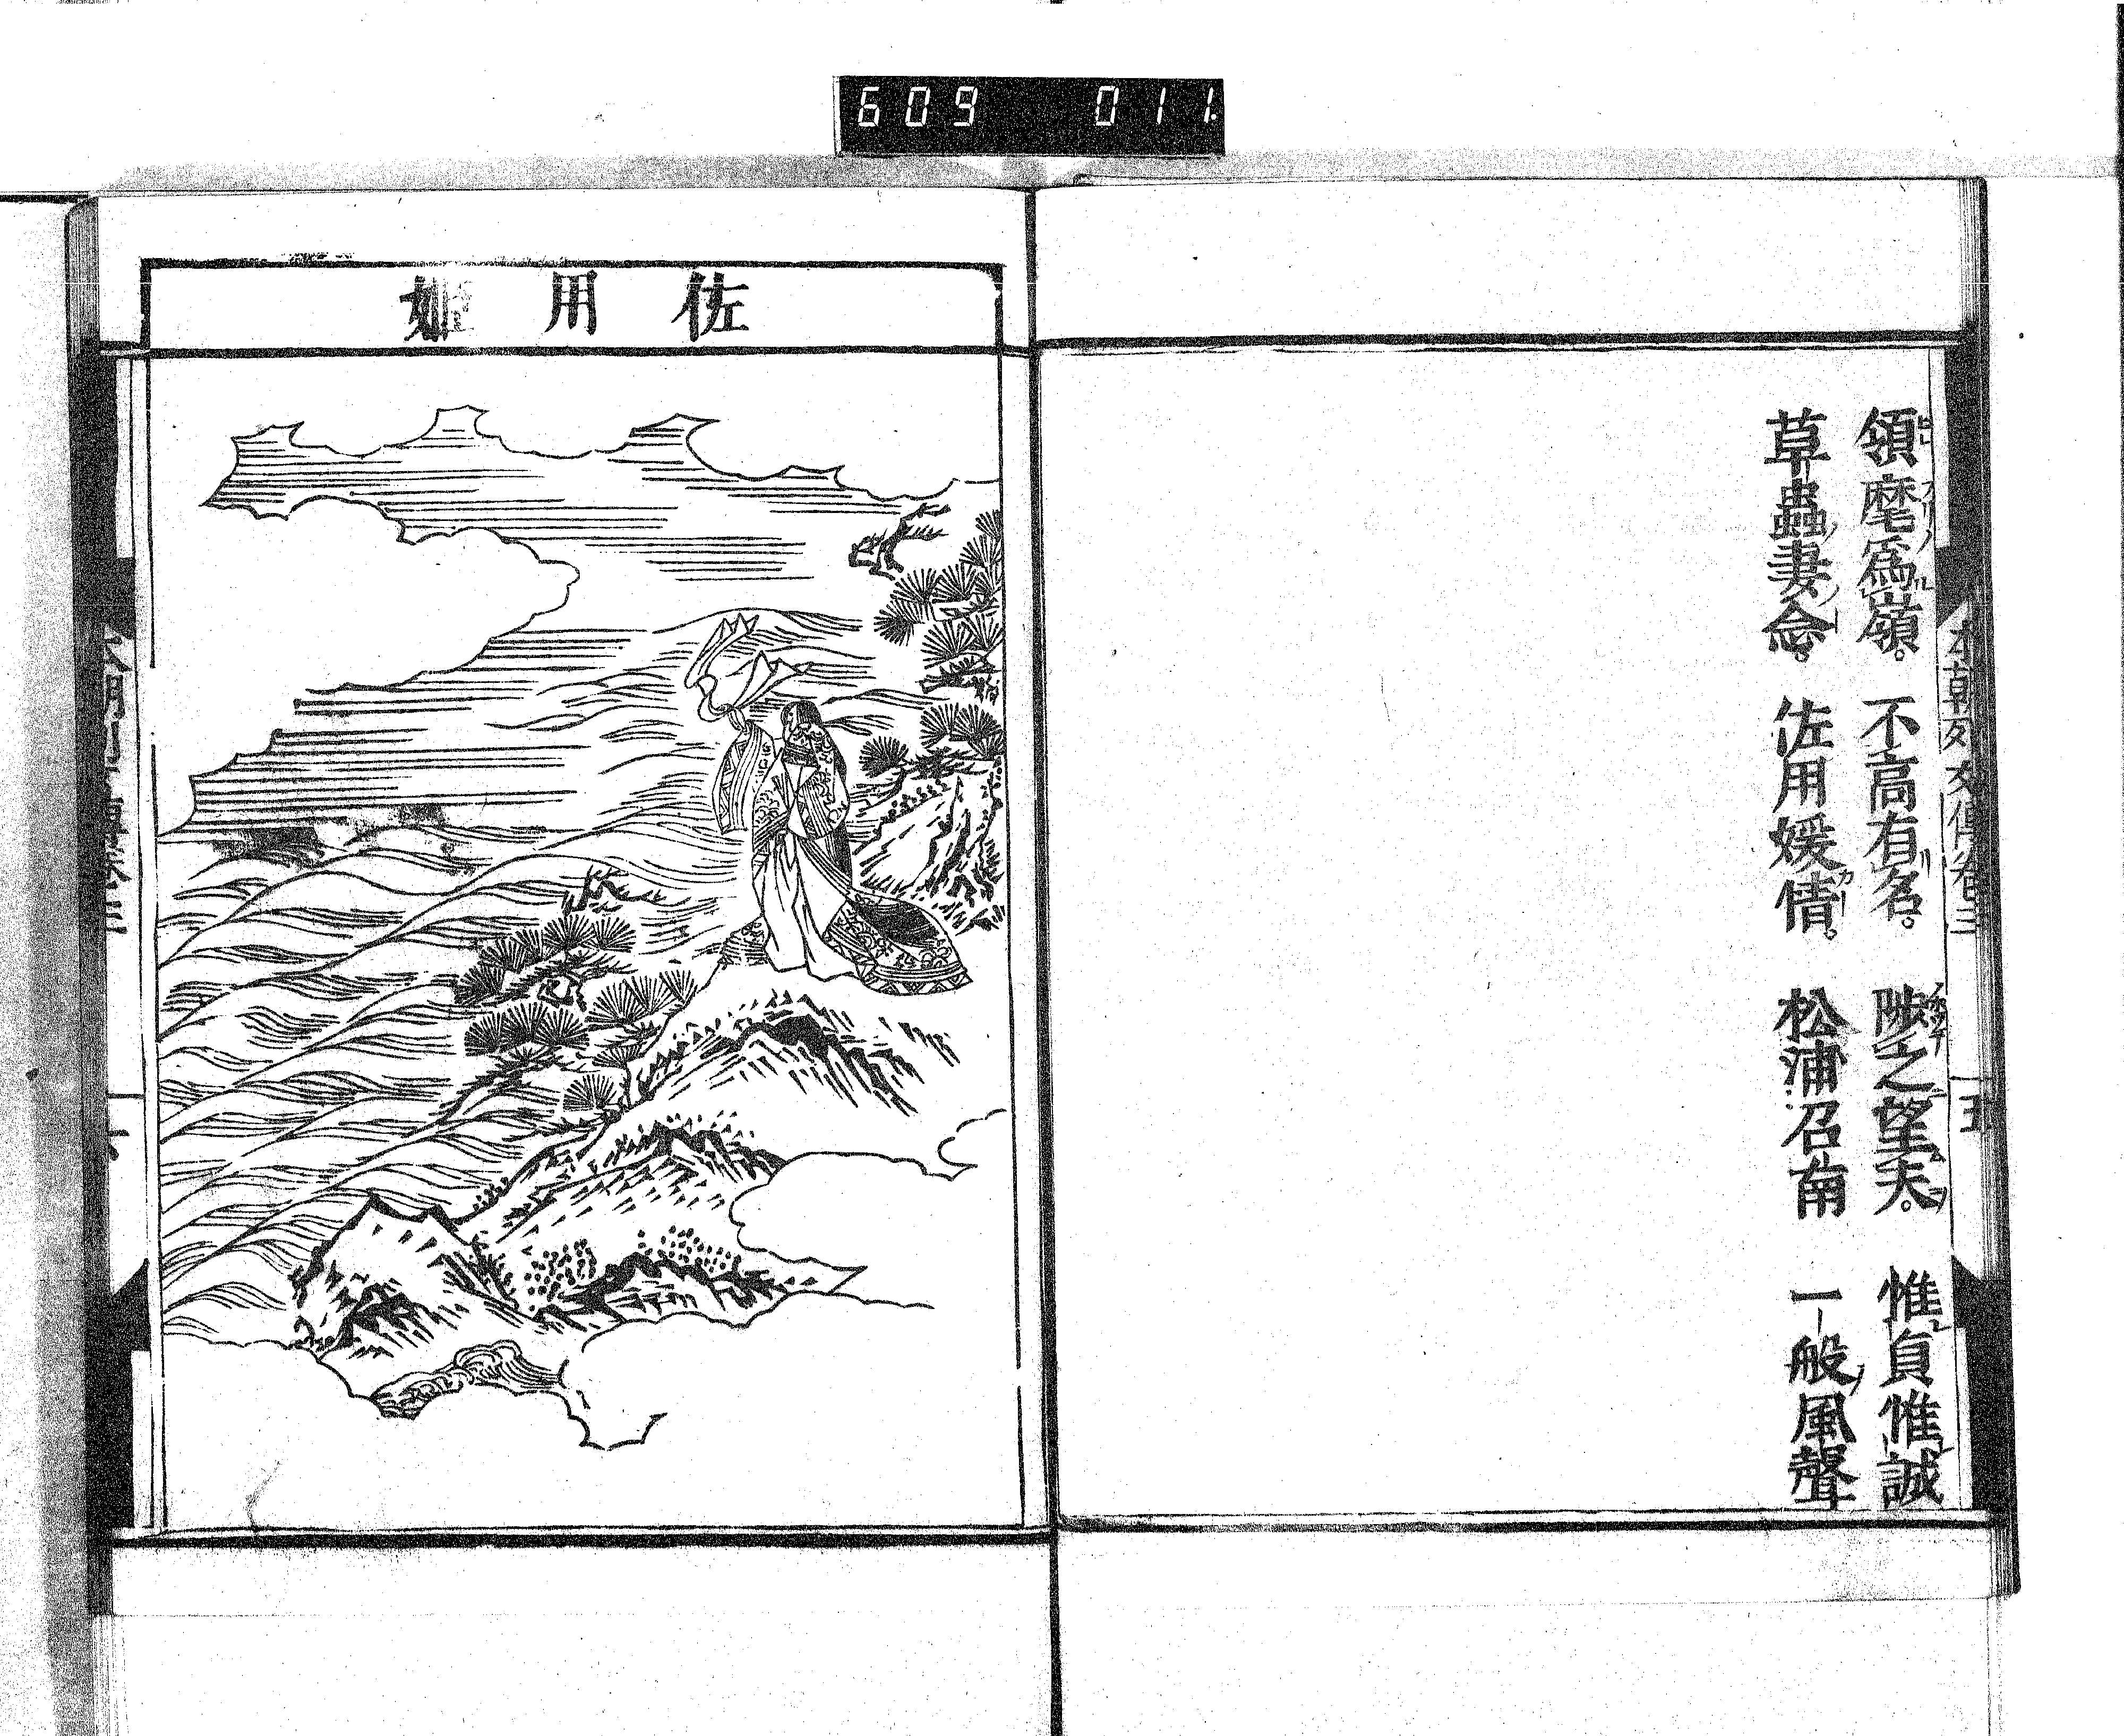 609 011
領麾爲嶺。 不高有名。 陟之望夫。 惟貞惟誠
草蟲妻念。 佐用媛情。 松浦召南 一般風聲
本朝列女傳卷三
五
佐用